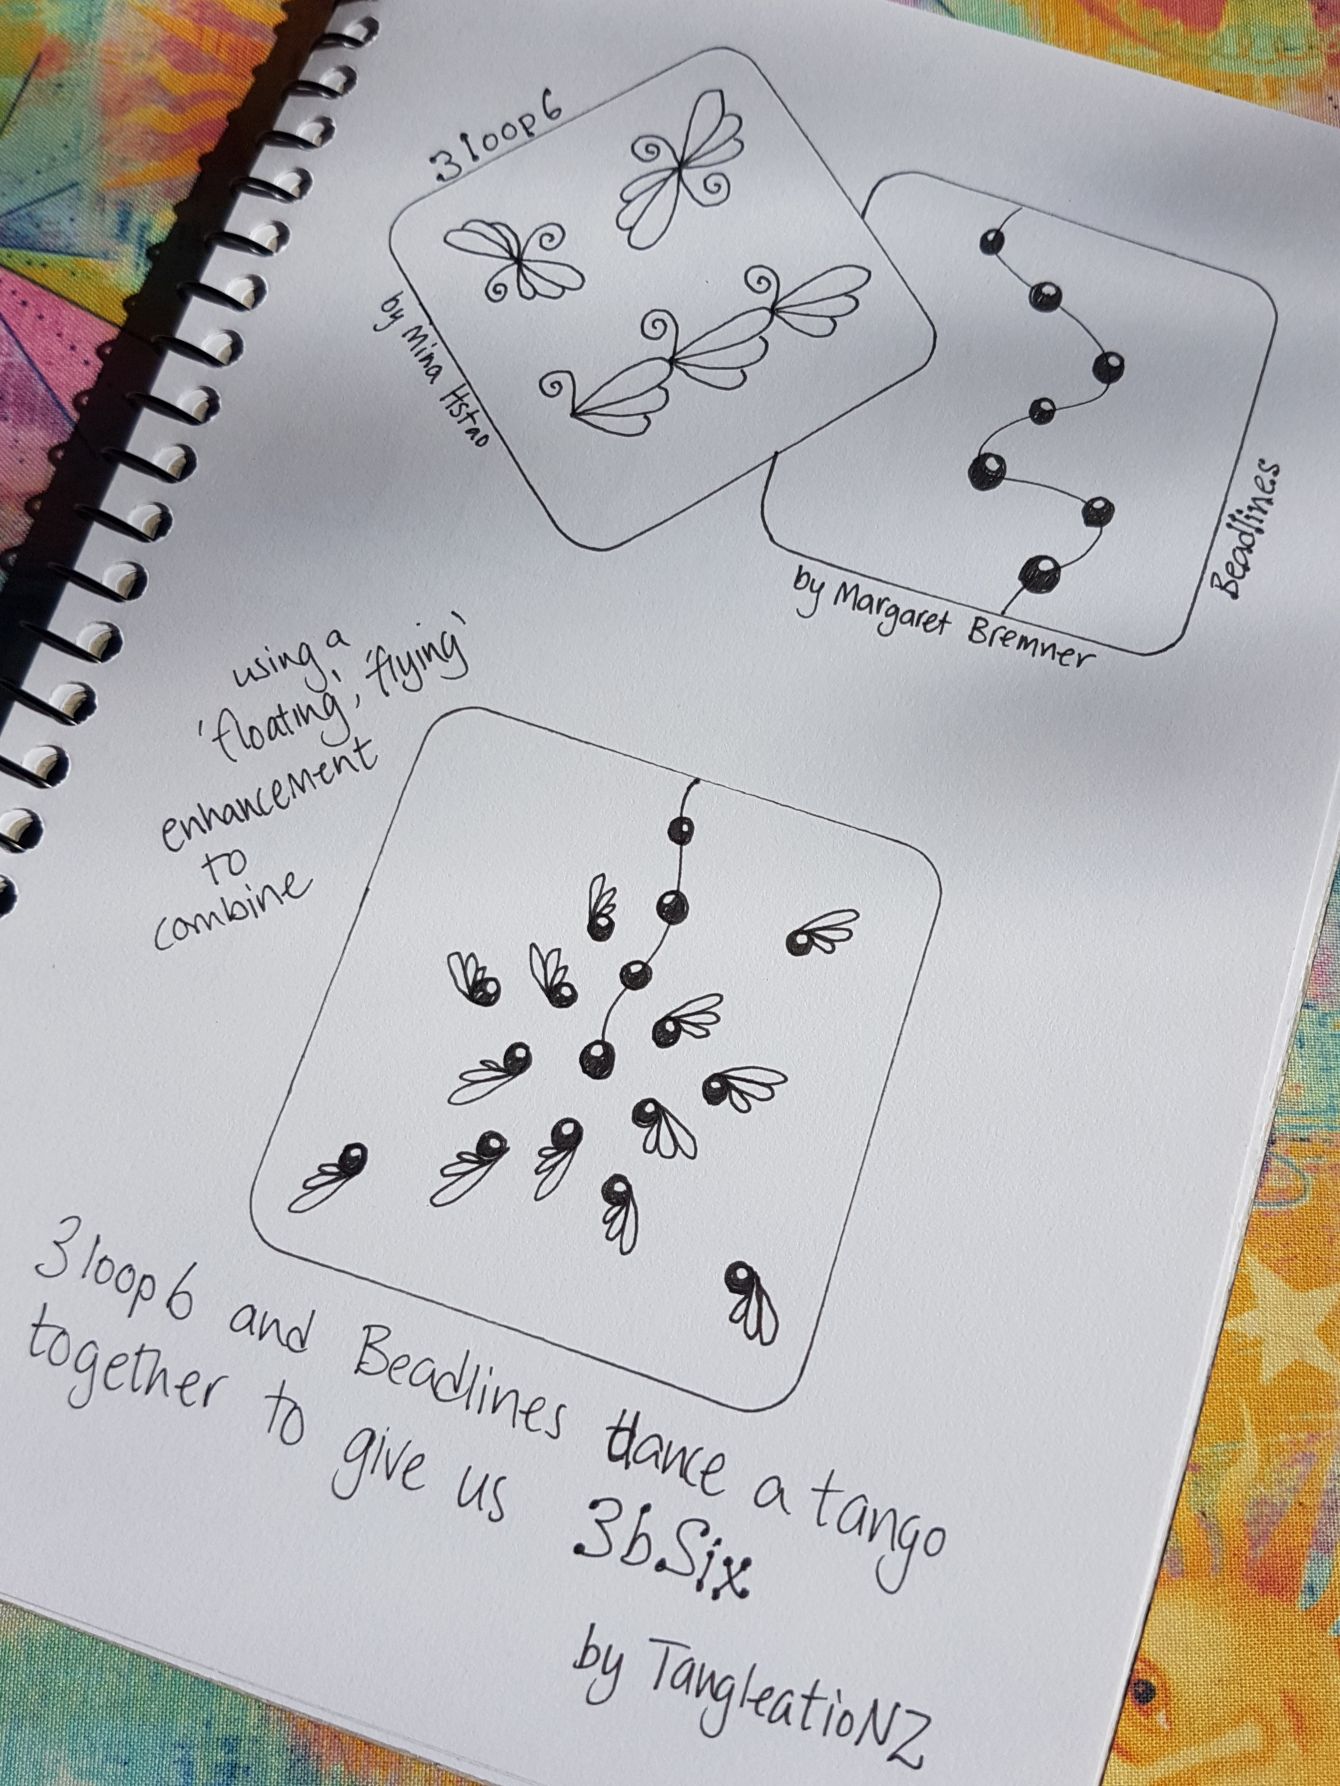 3loop6
by Mina Hsiao
Beadlines
by Margaret Bremner
using a
'floating', 'flying'
enhancement
to
combine
3loop6 and Beadlines dance a tango
together to give us 3bSix
by TangleatioNZ